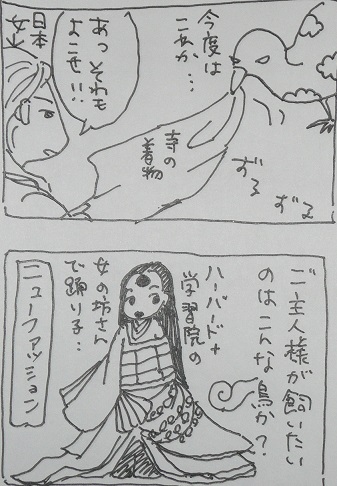 今度は
これか…
あっそれも
よこせ!!
日本
女山
寺の
着物
ずる
ずる
ご主人様が飼いたい
のはこんな鳥か?
ハーバード+
学習院の
女の坊さん
で踊り子…
ニューファッション